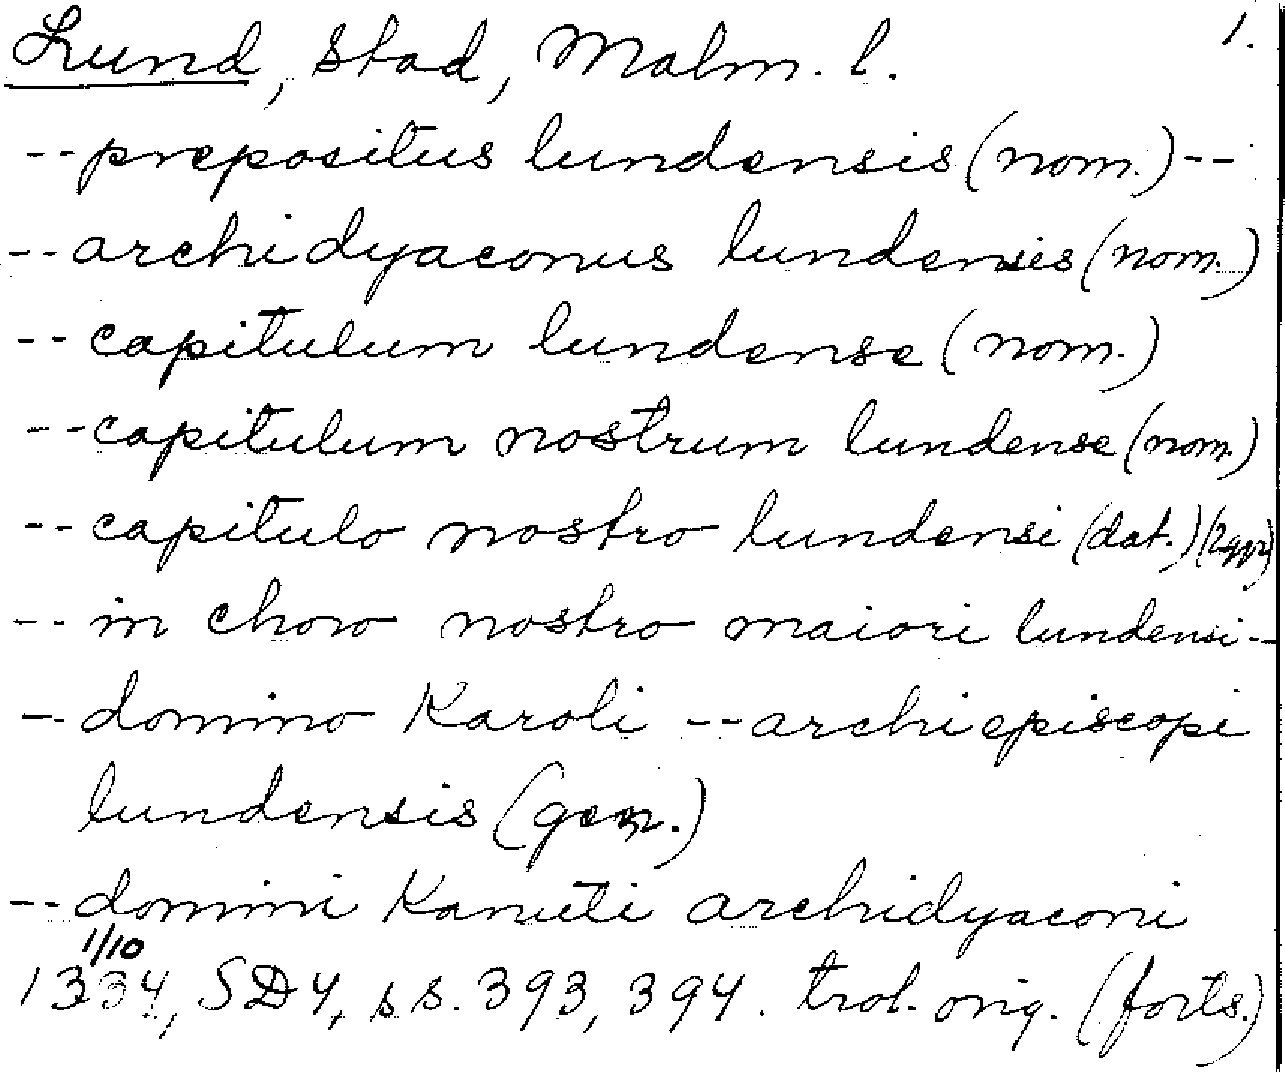 Lund, stad, Malm. l. 1.
-- prepositus lundensis (nom.) --
-- archidyaconus lundensis (nom.)
-- capitulum lundense (nom.)
-- capitulum nostrum lundense (nom.)
-- capitulo nostro lundensi (dat.) (2ggr)
-- in choro nostro maiori lundensi --
-- domino Karoli -- archiepiscopi
lundensis (gen.)
-- domini Kanuti archidyaconi
1/10
1334, SD4, s.s. 393, 394. trol. orig. (forts.)